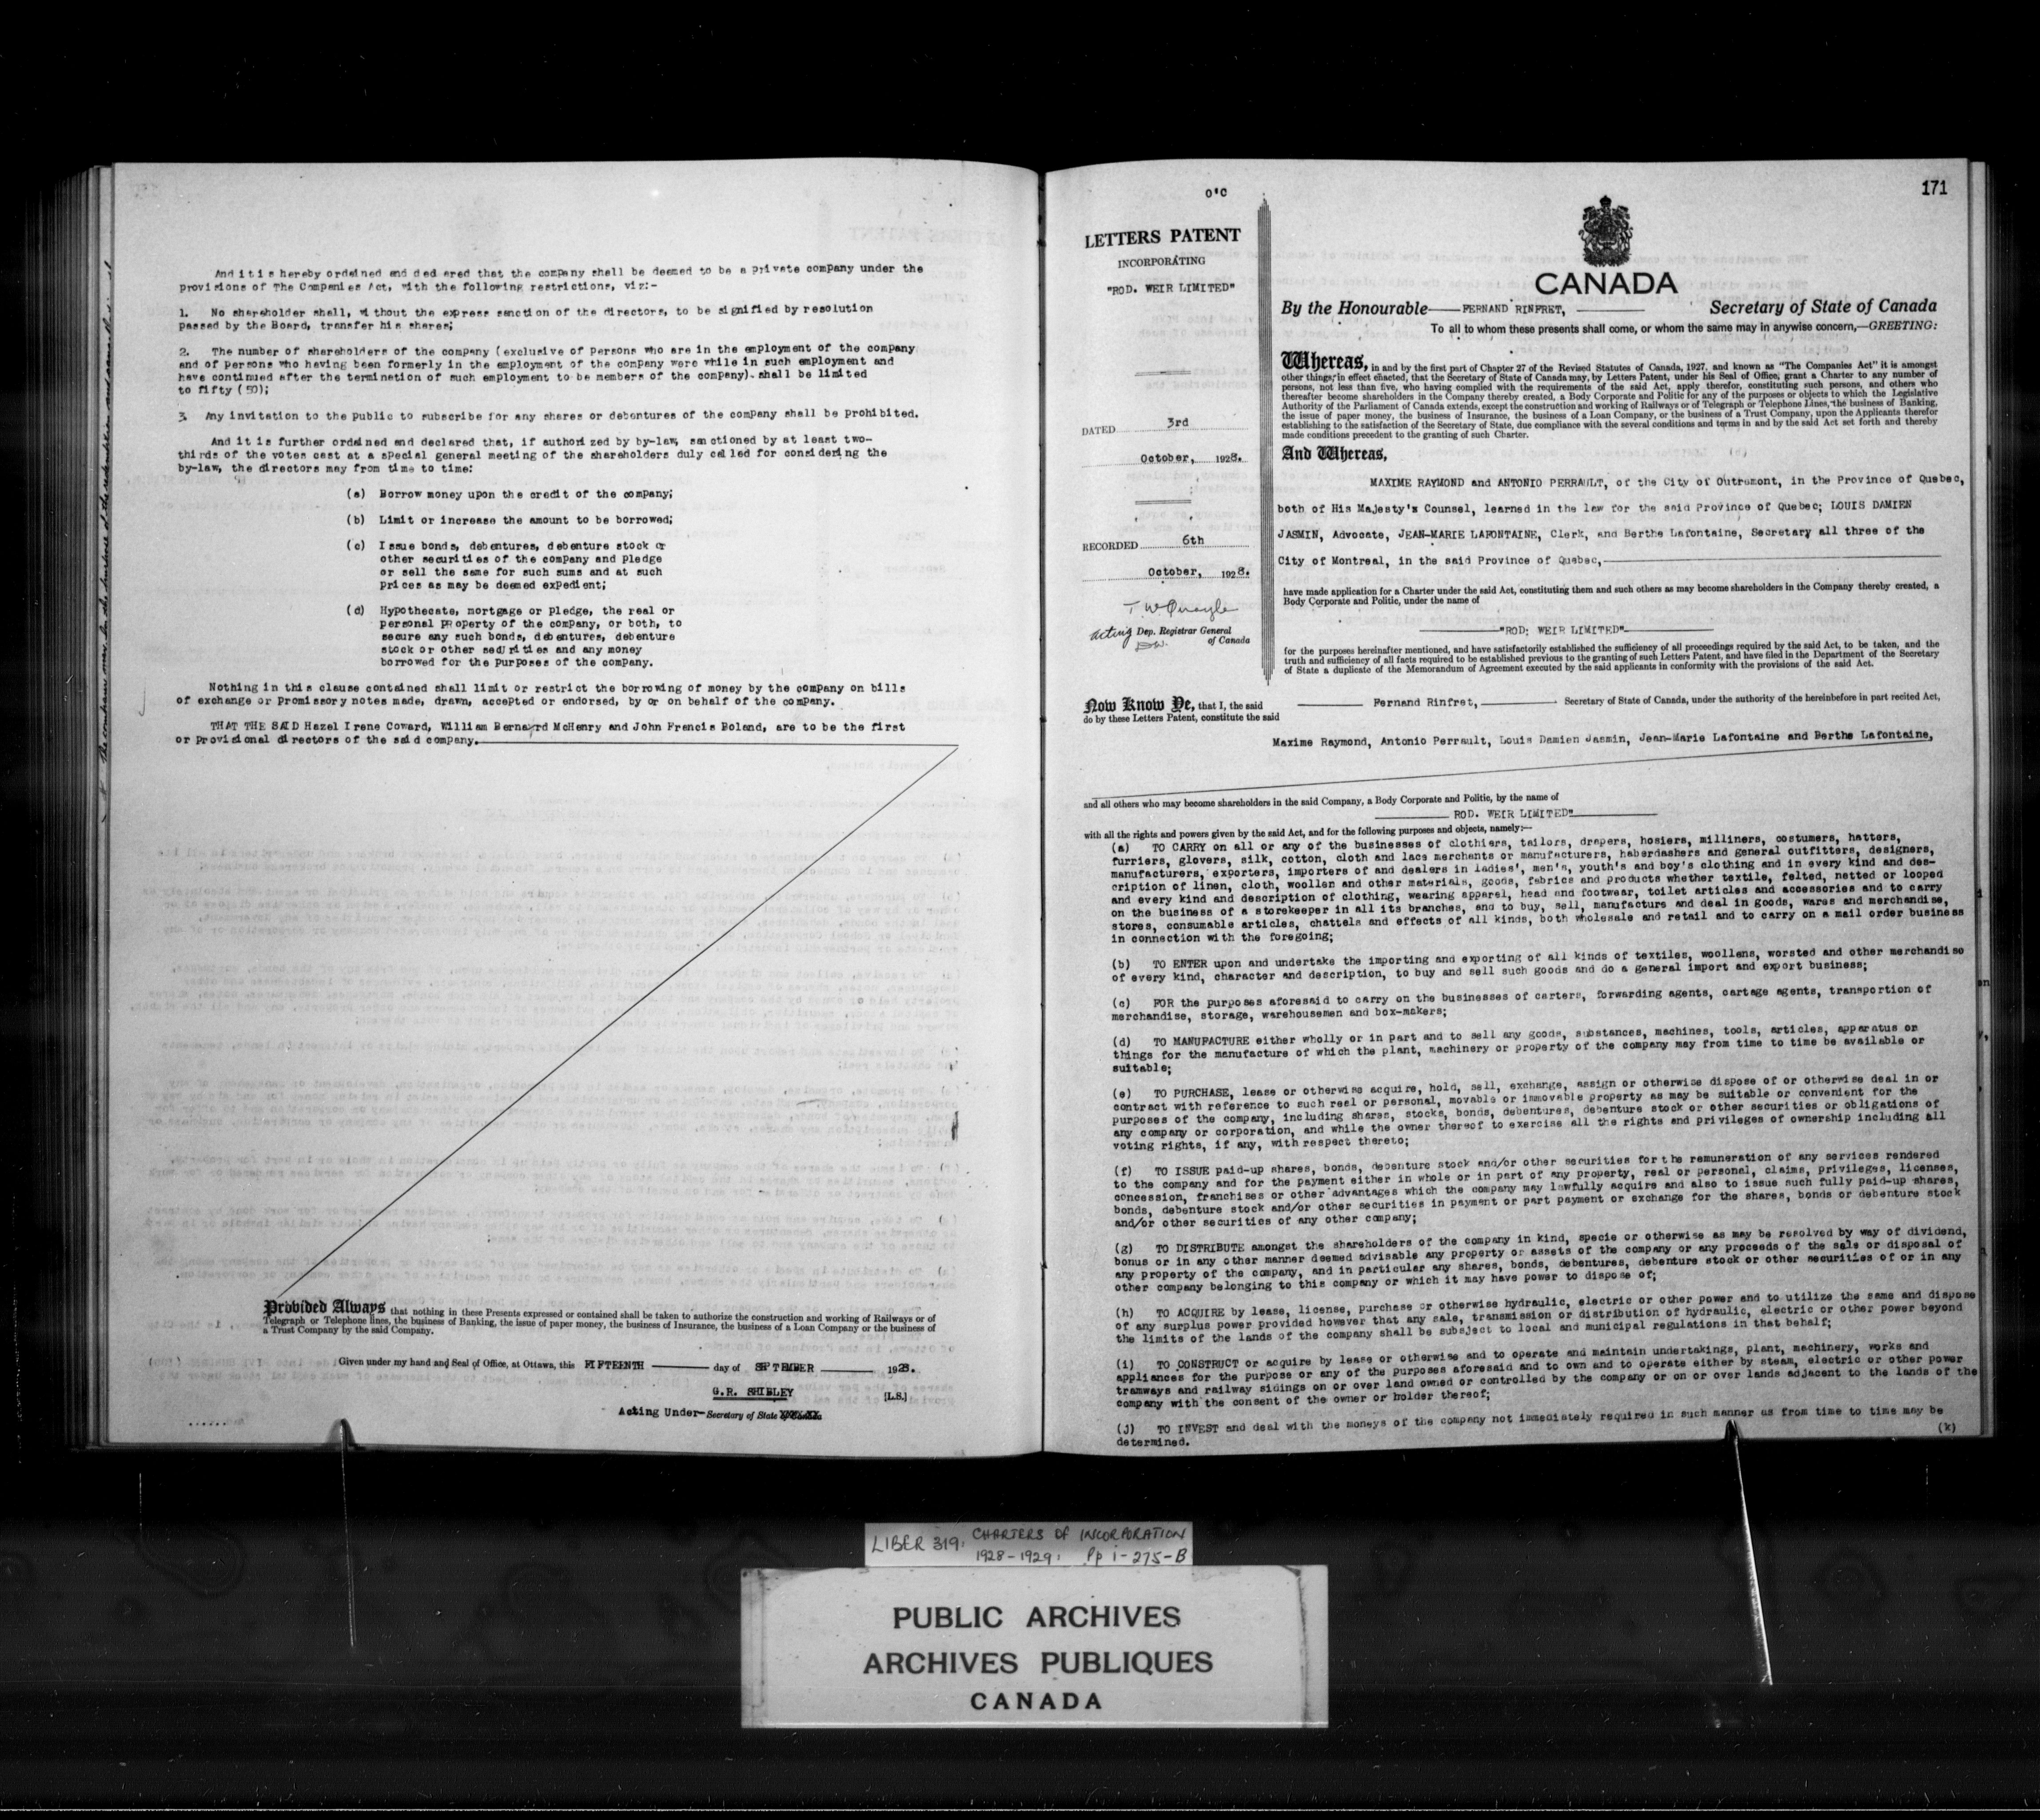 And it is hereby ordained and declared that the company shall be deemed to be a private company under the
provisions of The Companies Act, with the following restrictions, viz:-
1. No shareholder shall, without the express sanction of the directors, to be signified by resolution
passed by the Board, transfer his shares;
2. The number of shareholders of the company (exclusive of persons who are in the employment of the company
and of persons who having been formerly in the employment of the company were while in such employment and
have continued after the termination of such employment to be members of the company) shall be limited
to fifty (50);
3. Any invitation to the Public to subscribe for any shares or debentures of the company shall be prohibited.
And it is further ordained and declared that, if authorized by by-law, sanctioned by at least two-
thirds of the votes cast at a special general meeting of the shareholders duly called for considering the
by-law, the directors may from time to time:
(a) Borrow money upon the credit of the company;
(b) Limit or increase the amount to be borrowed;
(c) Issue bonds, debentures, debenture stock or
other securities of the company and pledge
or sell the same for such sums and at such
prices as may be deemed expedient;
(d) Hypothecate, mortgage or pledge, the real or
personal property of the company, or both, to
secure any such bonds, debentures, debenture
stock or other securities and any money
borrowed for the purposes of the company.
Nothing in this clause contained shall limit or restrict the borrowing of money by the company on bills
of exchange or Promissory notes made, drawn, accepted or endorsed, by or on behalf of the company.
THAT THE SAID Hazel Irene Coward, William Bernard McHenry and John Francis Boland, are to be the first
or Provisional directors of the said company.
Provided Always that nothing in these Presents expressed or contained shall be taken to authorize the construction and working of Railways or of
Telegraph or Telephone lines, the business of Banking, the issue of paper money, the business of Insurance, the business of a Loan Company or the business of
a Trust Company by the said Company.
Given under my hand and Seal of Office, at Ottawa, this FIFTEENTH day of SEPTEMBER 1928.
G.R. SHIBLEY [L.S.]
Acting Under-Secretary of State
......
171
O'C
LETTERS PATENT
INCORPORATING
"ROD. WEIR LIMITED"
DATED 3rd
October, 1928.
RECORDED 6th
October, 1928.
T W Quayle
Acting Dep. Registrar General
of Canada
CANADA
By the Honourable FERNAND RINFRET, Secretary of State of Canada
To all to whom these presents shall come, or whom the same may in anywise concern,—GREETING:
Whereas, in and by the first part of Chapter 27 of the Revised Statutes of Canada, 1927, and known as "The Companies Act" it is amongst
other things, in effect enacted, that the Secretary of State of Canada may, by Letters Patent, under his Seal of Office, grant a Charter to any number of
persons, not less than five, who having complied with the requirements of the said Act, apply therefor, constituting such persons, and others who
thereafter become shareholders in the Company thereby created, a Body Corporate and Politic for any of the purposes or objects to which the Legislative
Authority of the Parliament of Canada extends, except the construction and working of Railways or of Telegraph or Telephone Lines, the business of Banking,
the issue of paper money, the business of Insurance, the business of a Loan Company, or the business of a Trust Company, upon the Applicants therefor
establishing to the satisfaction of the Secretary of State, due compliance with the several conditions and terms in and by the said Act set forth and thereby
made conditions precedent to the granting of such Charter.
And Whereas,
MAXIME RAYMOND and ANTONIO PERRAULT, of the City of Outremont, in the Province of Quebec,
both of His Majesty's Counsel, learned in the law for the said Province of Quebec; LOUIS DAMIEN
JASMIN, Advocate, JEAN-MARIE LAFONTAINE, Clerk, and Berthe Lafontaine, Secretary all three of the
City of Montreal, in the said Province of Quebec,
have made application for a Charter under the said Act, constituting them and such others as may become shareholders in the Company thereby created, a
Body Corporate and Politic, under the name of
"ROD. WEIR LIMITED"
for the purposes hereinafter mentioned, and have satisfactorily established the sufficiency of all proceedings required by the said Act, to be taken, and the
truth and sufficiency of all facts required to be established previous to the granting of such Letters Patent, and have filed in the Department of the Secretary
of State a duplicate of the Memorandum of Agreement executed by the said applicants in conformity with the provisions of the said Act.
Now Know Ye, that I, the said Fernand Rinfret, Secretary of State of Canada, under the authority of the hereinbefore in part recited Act,
do by these Letters Patent, constitute the said
Maxime Raymond, Antonio Perrault, Louis Damien Jasmin, Jean-Marie Lafontaine and Berthe Lafontaine,
and all others who may become shareholders in the said Company, a Body Corporate and Politic, by the name of
ROD. WEIR LIMITED"
with all the rights and powers given by the said Act, and for the following purposes and objects, namely:—
(a) TO CARRY on all or any of the businesses of clothiers, tailors, drapers, hosiers, milliners, costumers, hatters,
furriers, glovers, silk, cotton, cloth and lace merchants or manufacturers, haberdashers and general outfitters, designers,
manufacturers, exporters, importers of and dealers in ladies', men's, youth's and boy's clothing and in every kind and des-
cription of linen, cloth, woollen and other materials, goods, fabrics and products whether textile, felted, netted or looped
and every kind and description of clothing, wearing apparel, head and footwear, toilet articles and accessories and to carry
on the business of a storekeeper in all its branches, and to buy, sell, manufacture and deal in goods, wares and merchandise,
stores, consumable articles, chattels and effects of all kinds, both wholesale and retail and to carry on a mail order business
in connection with the foregoing;
(b) TO ENTER upon and undertake the importing and exporting of all kinds of textiles, woollens, worsted and other merchandise
of every kind, character and description, to buy and sell such goods and do a general import and export business;
(c) FOR the purposes aforesaid to carry on the businesses of carters, forwarding agents, cartage agents, transportion of
merchandise, storage, warehousemen and box-makers;
(d) TO MANUFACTURE either wholly or in part and to sell any goods, substances, machines, tools, articles, apparatus or
things for the manufacture of which the plant, machinery or property of the company may from time to time be available or
suitable;
(e) TO PURCHASE, lease or otherwise acquire, hold, sell, exchange, assign or otherwise dispose of or otherwise deal in or
contract with reference to such real or personal, movable or immovable property as may be suitable or convenient for the
purposes of the company, including shares, stocks, bonds, debentures, debenture stock or other securities or obligations of
any company or corporation, and while the owner thereof to exercise all the rights and privileges of ownership including all
voting rights, if any, with respect thereto;
(f) TO ISSUE paid-up shares, bonds, debenture stock and/or other securities for the remuneration of any services rendered
to the company and for the payment either in whole or in part of any property, real or personal, claims, privileges, licenses,
concession, franchises or other advantages which the company may lawfully acquire and also to issue such fully paid-up shares,
bonds, debenture stock and/or other securities in payment or part payment or exchange for the shares, bonds or debenture stock
and/or other securities of any other company;
(g) TO DISTRIBUTE amongst the shareholders of the company in kind, specie or otherwise as may be resolved by way of dividend,
bonus or in any other manner deemed advisable any property or assets of the company or any proceeds of the sale or disposal of
any property of the company, and in particular any shares, bonds, debentures, debenture stock or other securities of or in any
other company belonging to this company or which it may have power to dispose of;
(h) TO ACQUIRE by lease, license, purchase or otherwise hydraulic, electric or other power and to utilize the same and dispose
of any surplus power provided however that any sale, transmission or distribution of hydraulic, electric or other power beyond
the limits of the lands of the company shall be subsject to local and municipal regulations in that behalf;
(i) TO CONSTRUCT or acquire by lease or otherwise and to operate and maintain undertakings, plant, machinery, works and
appliances for the purpose or any of the purposes aforesaid and to own and to operate either by steam, electric or other power
tramways and railway sidings on or over land owned or controlled by the company or on or over lands adjacent to the lands of the
company with the consent of the owner or holder thereof;
(j) TO INVEST and deal with the moneys of the company not immediately required in such manner as from time to time may be
determined.
(k)
LIBER 319: CHARTERS OF INCORPORATION
1928-1929: Pp i-275-B
PUBLIC ARCHIVES
ARCHIVES PUBLIQUES
CANADA